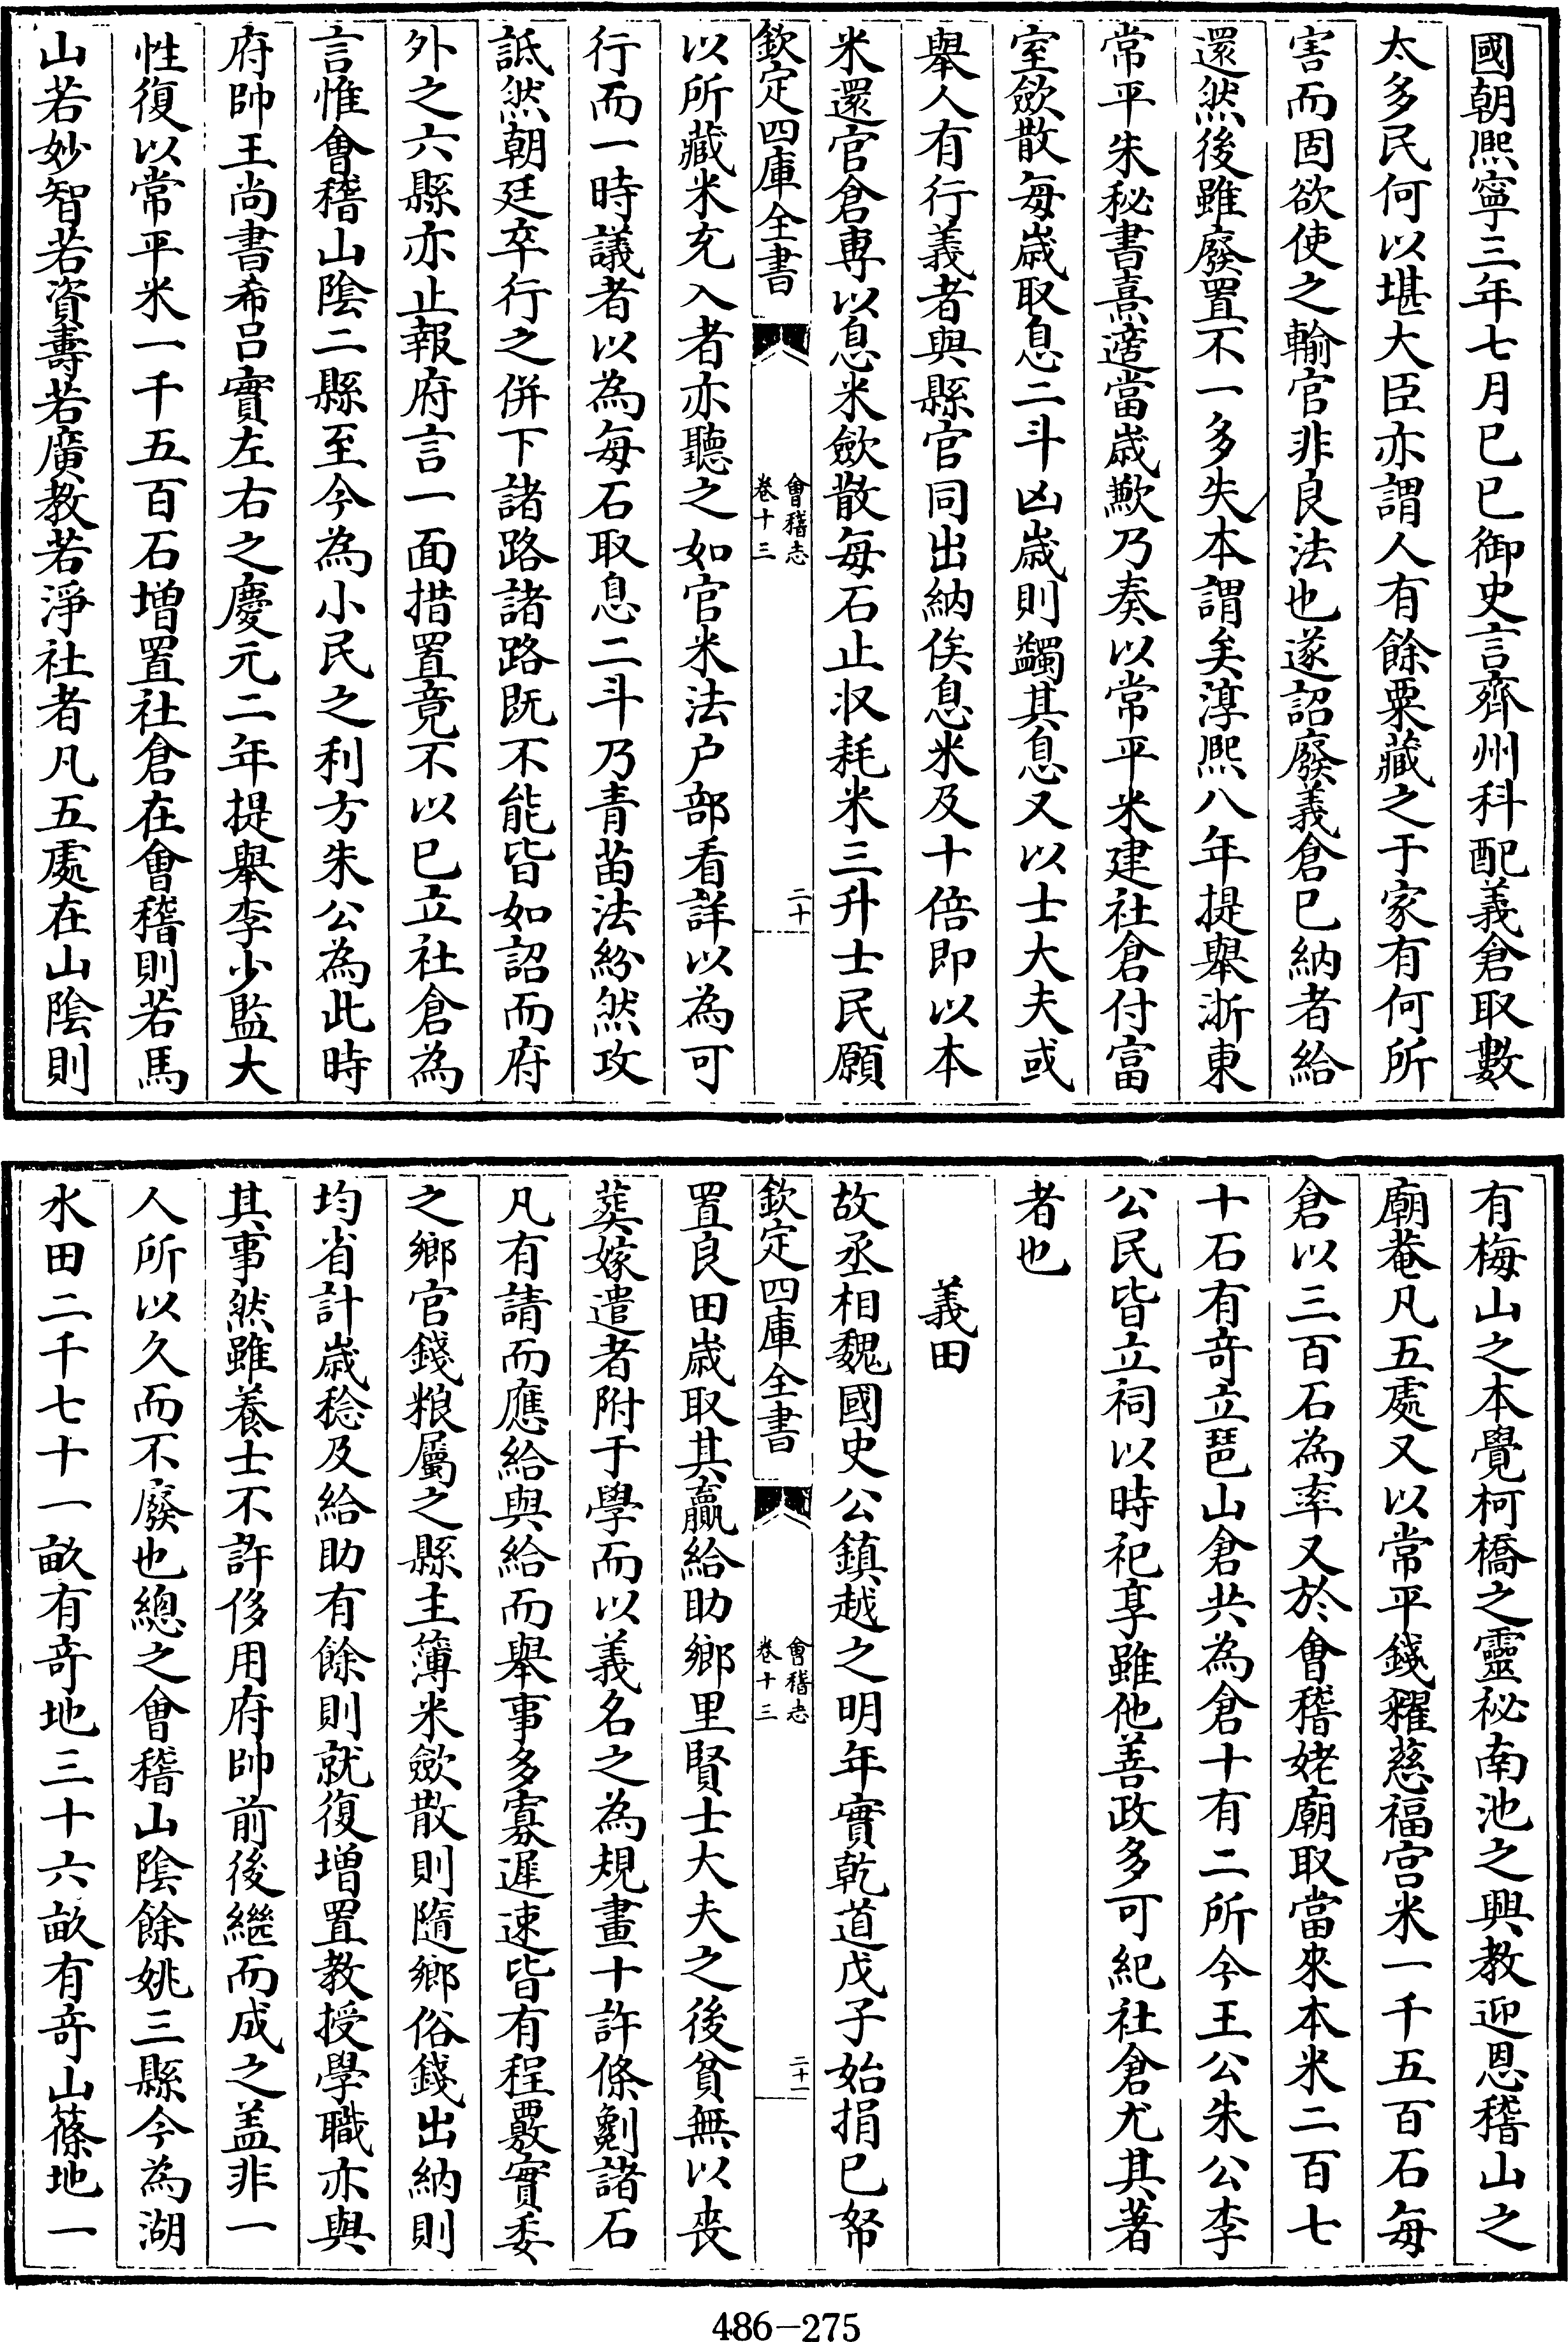 國朝熙寧三年七月已已御史言齊州科配義倉取數
太多民何以堪大臣亦謂人有餘粟藏之于家有何所
害而固欲使之輸官非良法也遂詔廢義倉已納者給
還然後雖廢置不一多失本謂矣淳熙八年提舉浙東
常平朱秘書熹適當歲歉乃奏以常平米建社倉付富
室斂散每歲取息二斗凶歲則蠲其息又以士大夫或
舉人有行義者與縣官同出納俟息米及十倍即以本
米還官倉専以息米斂散每石止収耗米三升士民願
欽定四庫全書
會稽志
卷十三
二十
以所藏米充入者亦聽之如官米法户部看詳以為可
行而一時議者以為每石取息二斗乃青苗法紛然攻
詆然朝廷卒行之併下諸路諸路既不能皆如詔而府
外之六縣亦止報府言一面措置竟不以已立社倉為
言惟會稽山隂二縣至今為小民之利方朱公為此時
府帥王尚書希吕實左右之慶元二年提舉李少監大
性復以常平米一千五百石増置社倉在會稽則若馬
山若妙智若資壽若廣教若淨社者凡五處在山隂則
有梅山之本覺柯橋之靈祕南池之興教迎恩稽山之
廟菴凡五處又以常平錢糴慈福宫米一千五百石每
倉以三百石為率又於會稽姥廟取當來本米二百七
十石有竒立琶山倉共為倉十有二所今王公朱公李
公民皆立祠以時祀享雖他善政多可紀社倉尤其著
者也
義田
故丞相魏國史公鎮越之明年實乾道戊子始捐已帑
欽定四庫全書
會稽志
卷十三
二十一
置良田歲取其贏給助鄉里賢士大夫之後貧無以喪
葬嫁遣者附于學而以義名之為規畫十許條劖諸石
凡有請而應給與給而舉事多寡遲速皆有程覈實委
之鄉官錢粮屬之縣主簿米斂散則隨鄉俗錢出納則
均省計歲稔及給助有餘則就復増置教授學職亦與
其事然雖養士不許侈用府帥前後繼而成之盖非一
人所以久而不廢也總之會稽山隂餘姚三縣今為湖
水田二千七十一畝有竒地三十六畝有竒山篠地一
486-275